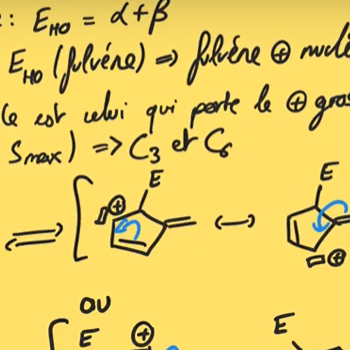 : E_HO = α+β
E_HO (fulvène) => fulvène ⊕ nuclé
Ce est celui qui porte le ⊕ gros
Smax) => C3 et C6
E
E
⊕
⊕
OU
E ⊕
E